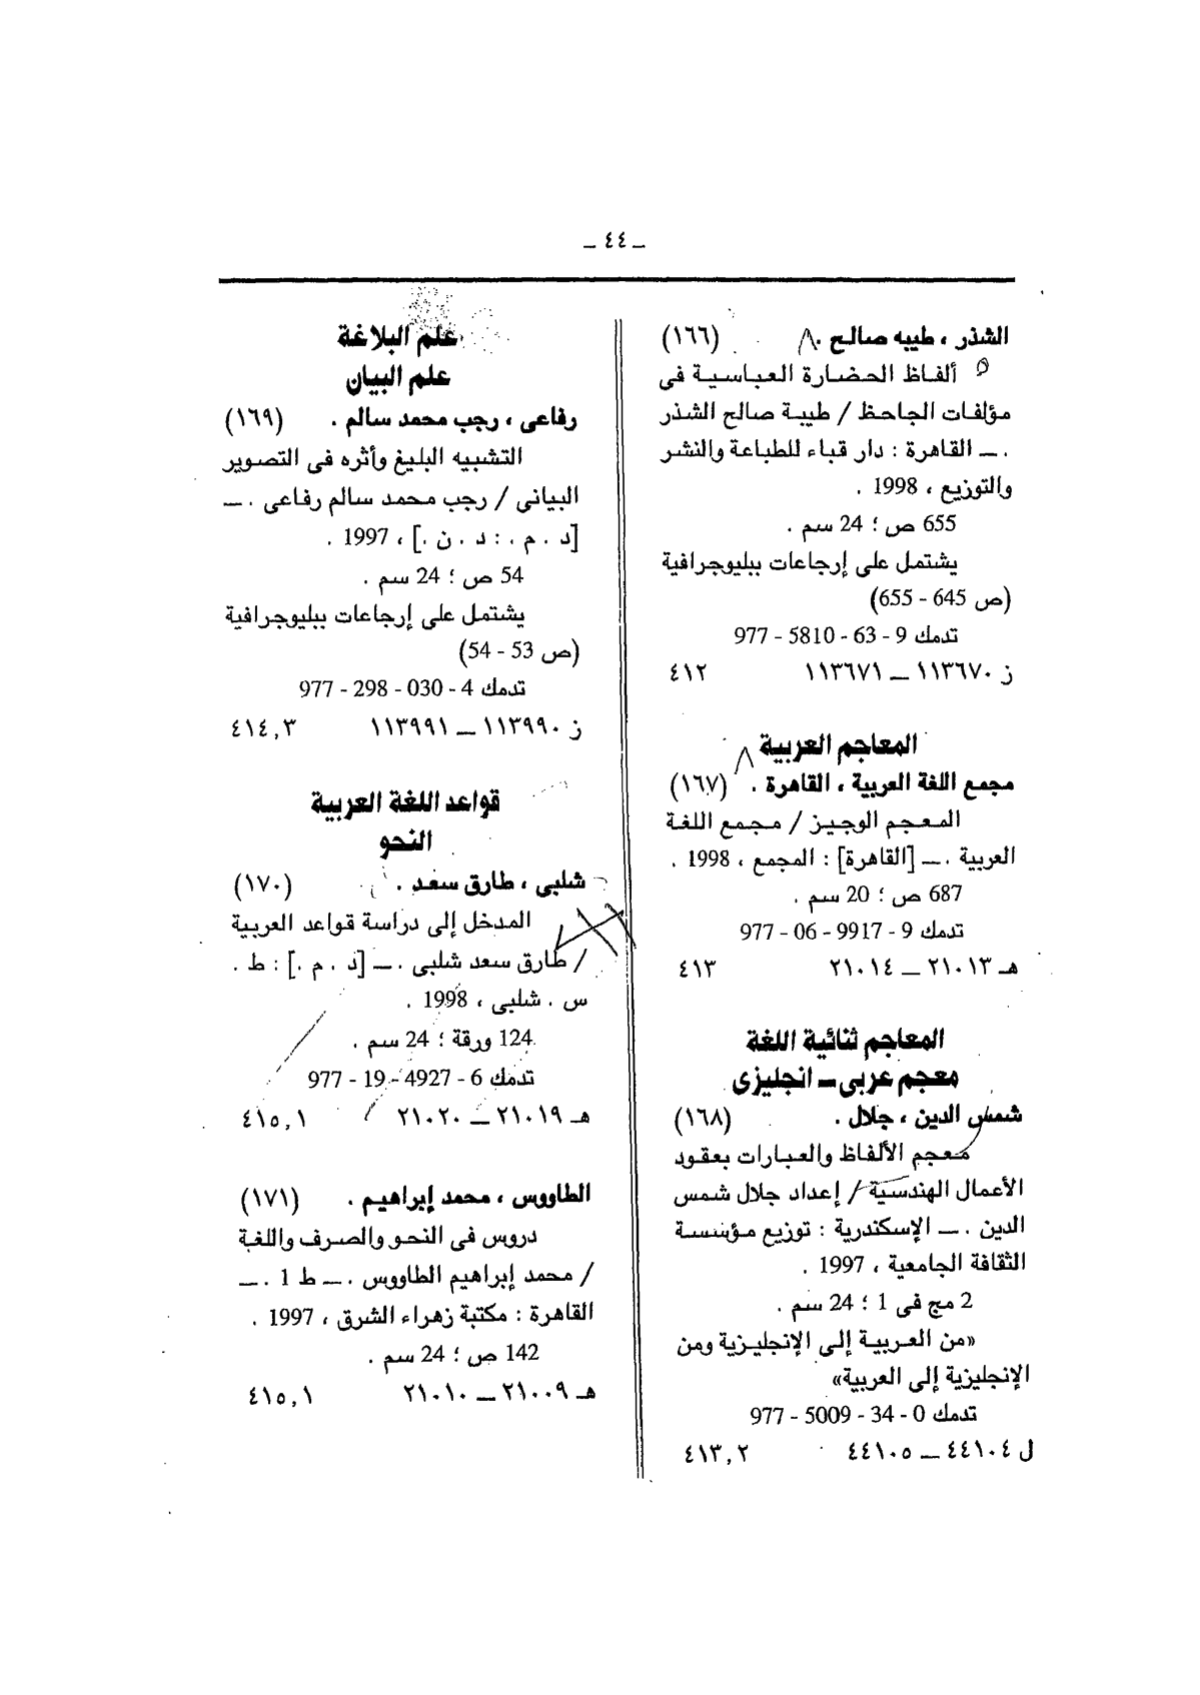 ـ ٤٤ ـ
الشذر ، طيبه صالح . (١٦٦)
ألفاظ الحضارة العباسية فى
مؤلفات الجاحظ / طيبة صالح الشذر
. ــ القاهرة : دار قباء للطباعة والنشر
والتوزيع ، 1998 .
655 ص ؛ 24 سم .
يشتمل على إرجاعات ببليوجرافية
(ص 645 - 655)
تدمك 9 - 63 - 5810 - 977
ز ١١٣٦٧٠ ــ ١١٣٦٧١ ٤١٢
المعاجم العربية
مجمع اللغة العربية ، القاهرة . (١٦٧)
المعجم الوجيز / مجمع اللغة
العربية . ــ [القاهرة] : المجمع ، 1998 .
687 ص ؛ 20 سم .
تدمك 9 - 9917 - 06 - 977
هـ ٢١٠١٣ ــ ٢١٠١٤ ٤١٣
المعاجم ثنائية اللغة
معجم عربى ــ انجليزى
شمس الدين ، جلال . (١٦٨)
معجم الألفاظ والعبارات بعقود
الأعمال الهندسية / إعداد جلال شمس
الدين . ــ الإسكندرية : توزيع مؤسسة
الثقافة الجامعية ، 1997 .
2 مج فى 1 ؛ 24 سم .
«من العربية إلى الإنجليزية ومن
الإنجليزية إلى العربية»
تدمك 0 - 34 - 5009 - 977
ل ٤٤١٠٤ ــ ٤٤١٠٥ ٤١٣,٢
علم البلاغة
علم البيان
رفاعى ، رجب محمد سالم . (١٦٩)
التشبيه البليغ وأثره فى التصوير
البيانى / رجب محمد سالم رفاعى . ــ
[د . م . : د . ن .] ، 1997 .
54 ص ؛ 24 سم .
يشتمل على إرجاعات ببليوجرافية
(ص 53 - 54)
تدمك 4 - 030 - 298 - 977
ز ١١٣٩٩٠ ــ ١١٣٩٩١ ٤١٤,٣
قواعد اللغة العربية
النحو
شلبى ، طارق سعد . (١٧٠)
المدخل إلى دراسة قواعد العربية
/ طارق سعد شلبى . ــ [د . م .] : ط .
س . شلبى ، 1998 .
124 ورقة ؛ 24 سم .
تدمك 6 - 4927 - 19 - 977
هـ ٢١٠١٩ ــ ٢١٠٢٠ ٤١٥,١
الطاووس ، محمد إبراهيم . (١٧١)
دروس فى النحو والصرف واللغة
/ محمد إبراهيم الطاووس . ــ ط 1 . ــ
القاهرة : مكتبة زهراء الشرق ، 1997 .
142 ص ؛ 24 سم .
هـ ٢١٠٠٩ ــ ٢١٠١٠ ٤١٥,١